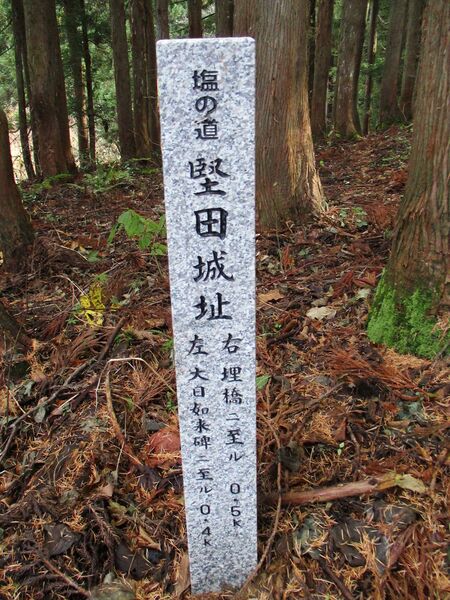 塩の道
堅田城址
右 埋橋ニ至ル 0.5K
左 大日如来碑ニ至ル 0.4K